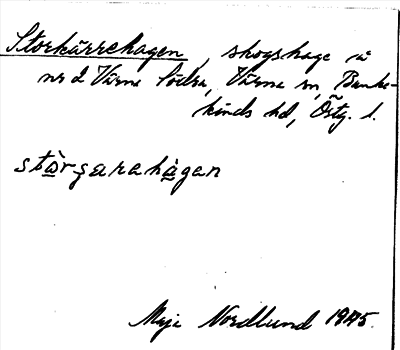 Storkärrehagen, skogshage å
nr 2 Värna Södra, Värna sn, Banke-
kinds hd, Östg. l.
stòrȥarahàgen
Maja Nordlund 1945.